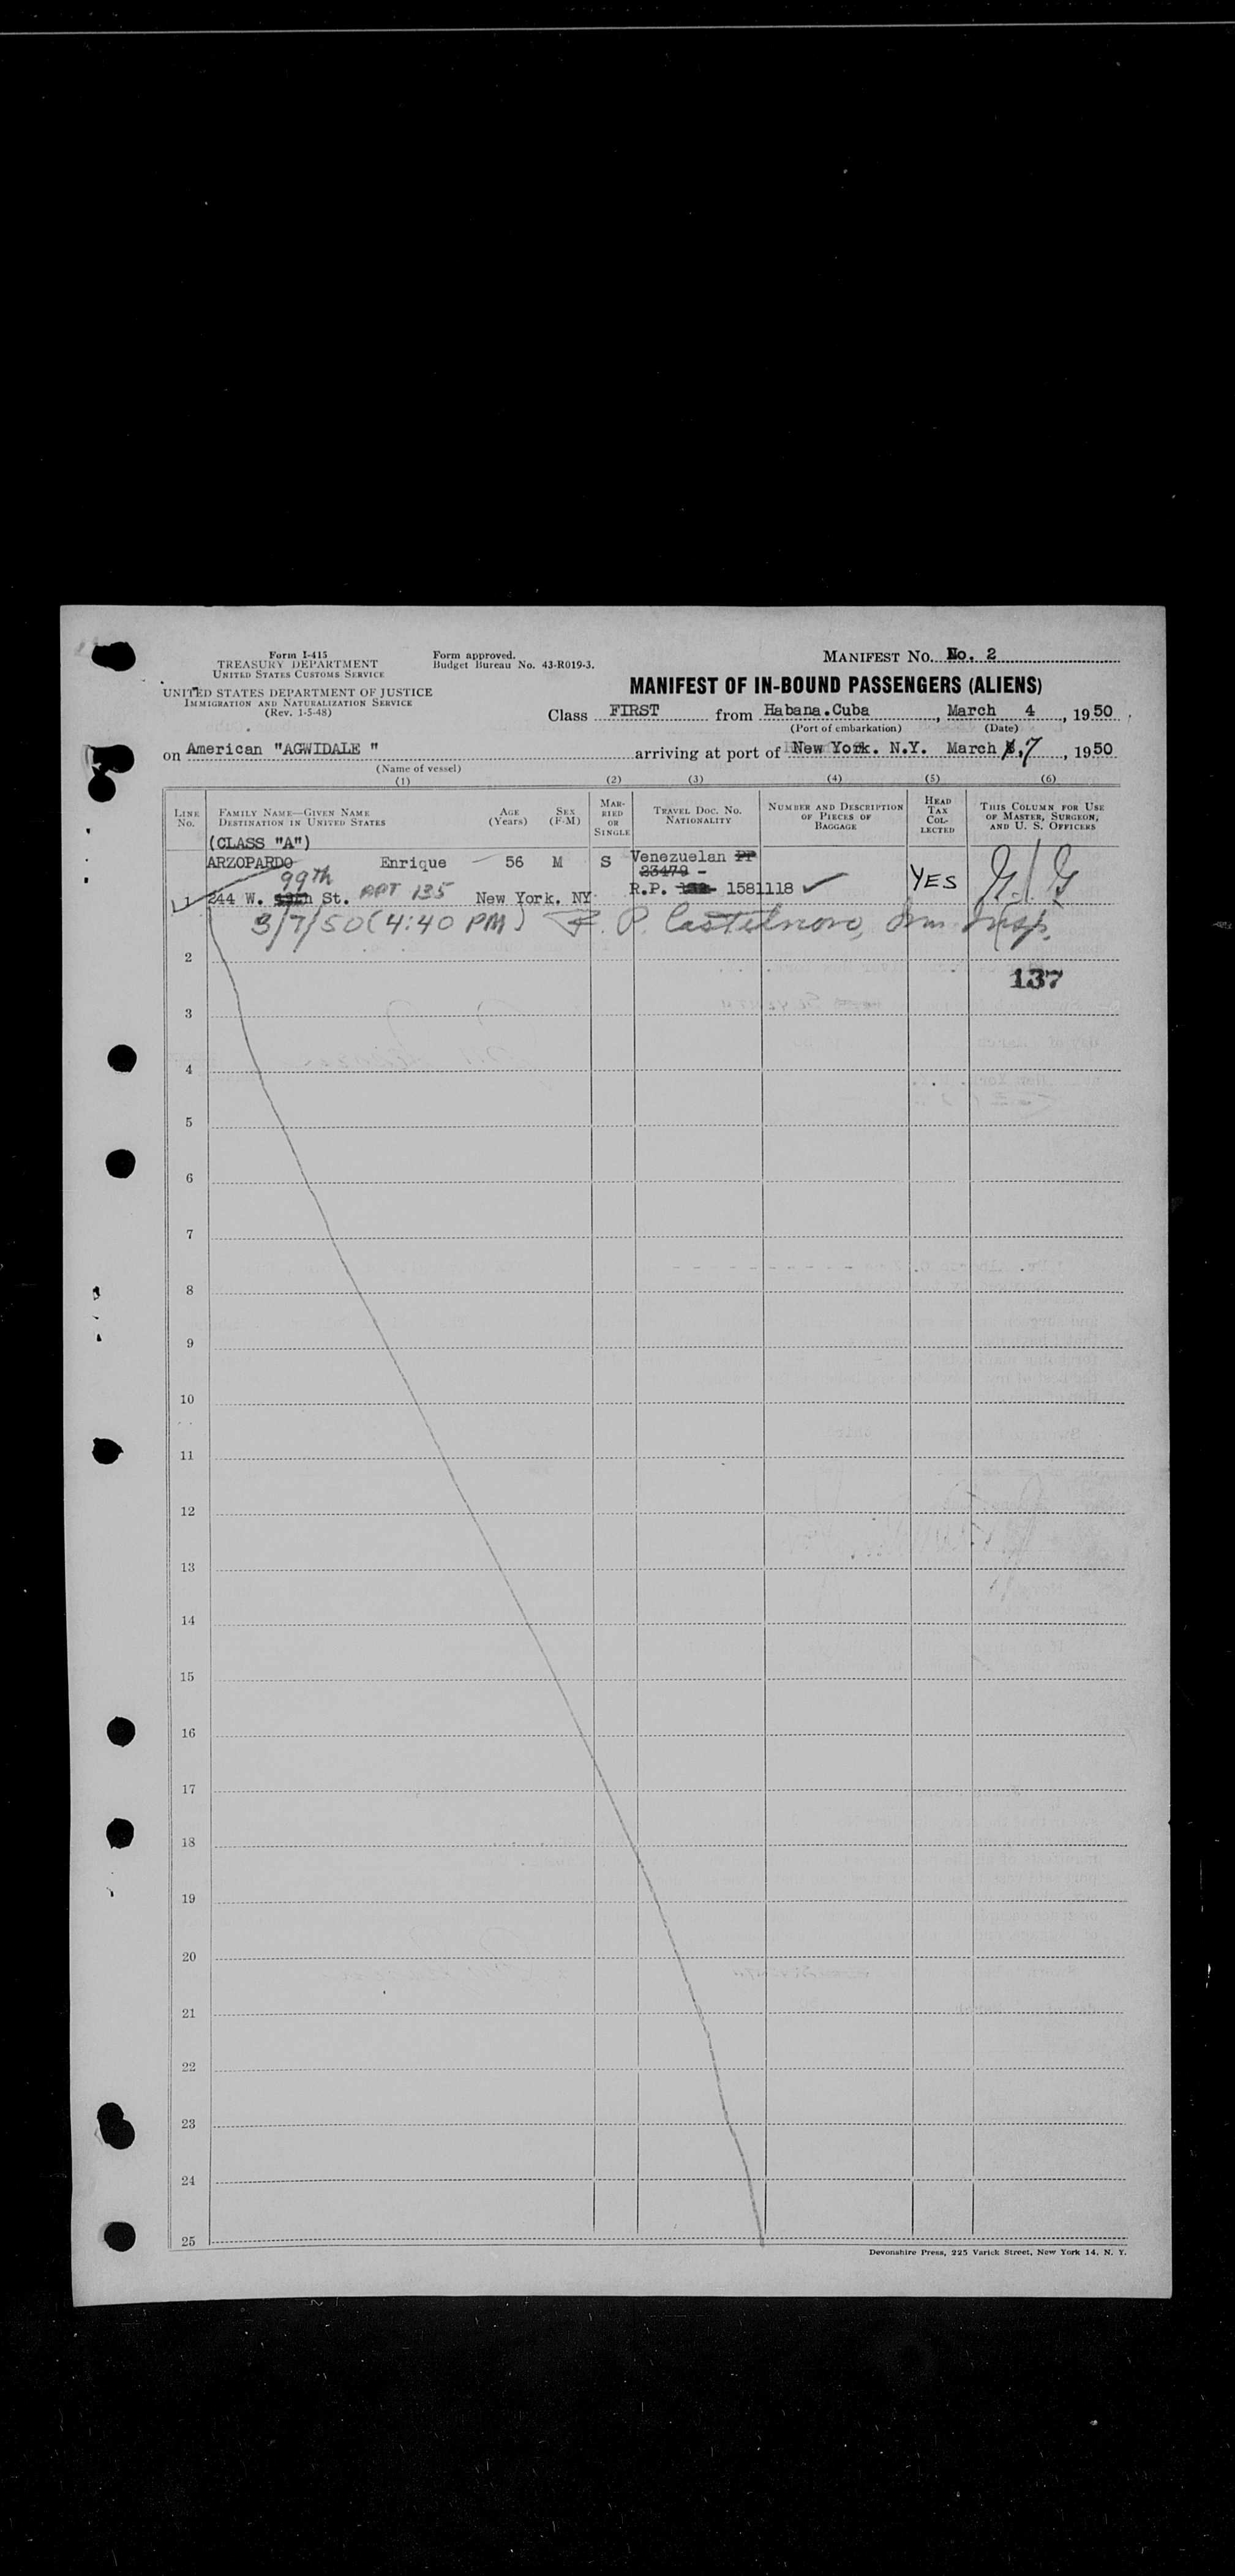 Form I-415
TREASURY DEPARTMENT
UNITED STATES CUSTOMS SERVICE
UNITED STATES DEPARTMENT OF JUSTICE
IMMIGRATION AND NATURALIZATION SERVICE
(Rev. 1-5-48)
Form approved.
Budget Bureau No. 43-R019-3.
MANIFEST NO. No. 2
MANIFEST OF IN-BOUND PASSENGERS (ALIENS)
Class FIRST from Habana.Cuba, March 4, 1950
(Port of embarkation) (Date)
on American "AGWIDALE " arriving at port of New York. N.Y. March 7, 1950
(Name of vessel)
(1) (2) (3) (4) (5) (6)
LINE NO. FAMILY NAME—GIVEN NAME DESTINATION IN UNITED STATES AGE (Years) SEX (F-M) MARRIED OR SINGLE TRAVEL DOC. NO. NATIONALITY NUMBER AND DESCRIPTION OF PIECES OF BAGGAGE HEAD TAX COLLECTED THIS COLUMN FOR USE OF MASTER, SURGEON, AND U. S. OFFICERS
(CLASS "A")
ARZOPARDO Enrique 56 M S Venezuelan PP
23479 -
99th
1 244 W. St. APT 135 New York. NY R.P. 1581118 YES
3/7/50 (4:40 PM) P. Castelnovo, Imm Insp.
2
137
3
4
5
6
7
8
9
10
11
12
13
14
15
16
17
18
19
20
21
22
23
24
25
Devonshire Press, 225 Varick Street, New York 14, N. Y.